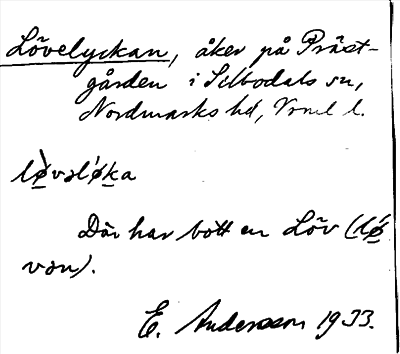 Lövelyckan, åker på Präst-
gården i Silbodals sn,
Nordmarks hd, Vrml l.
lø̀vəlǿka
Där har bott en Löv (lǿ
vən).
E. Andersson 1933.